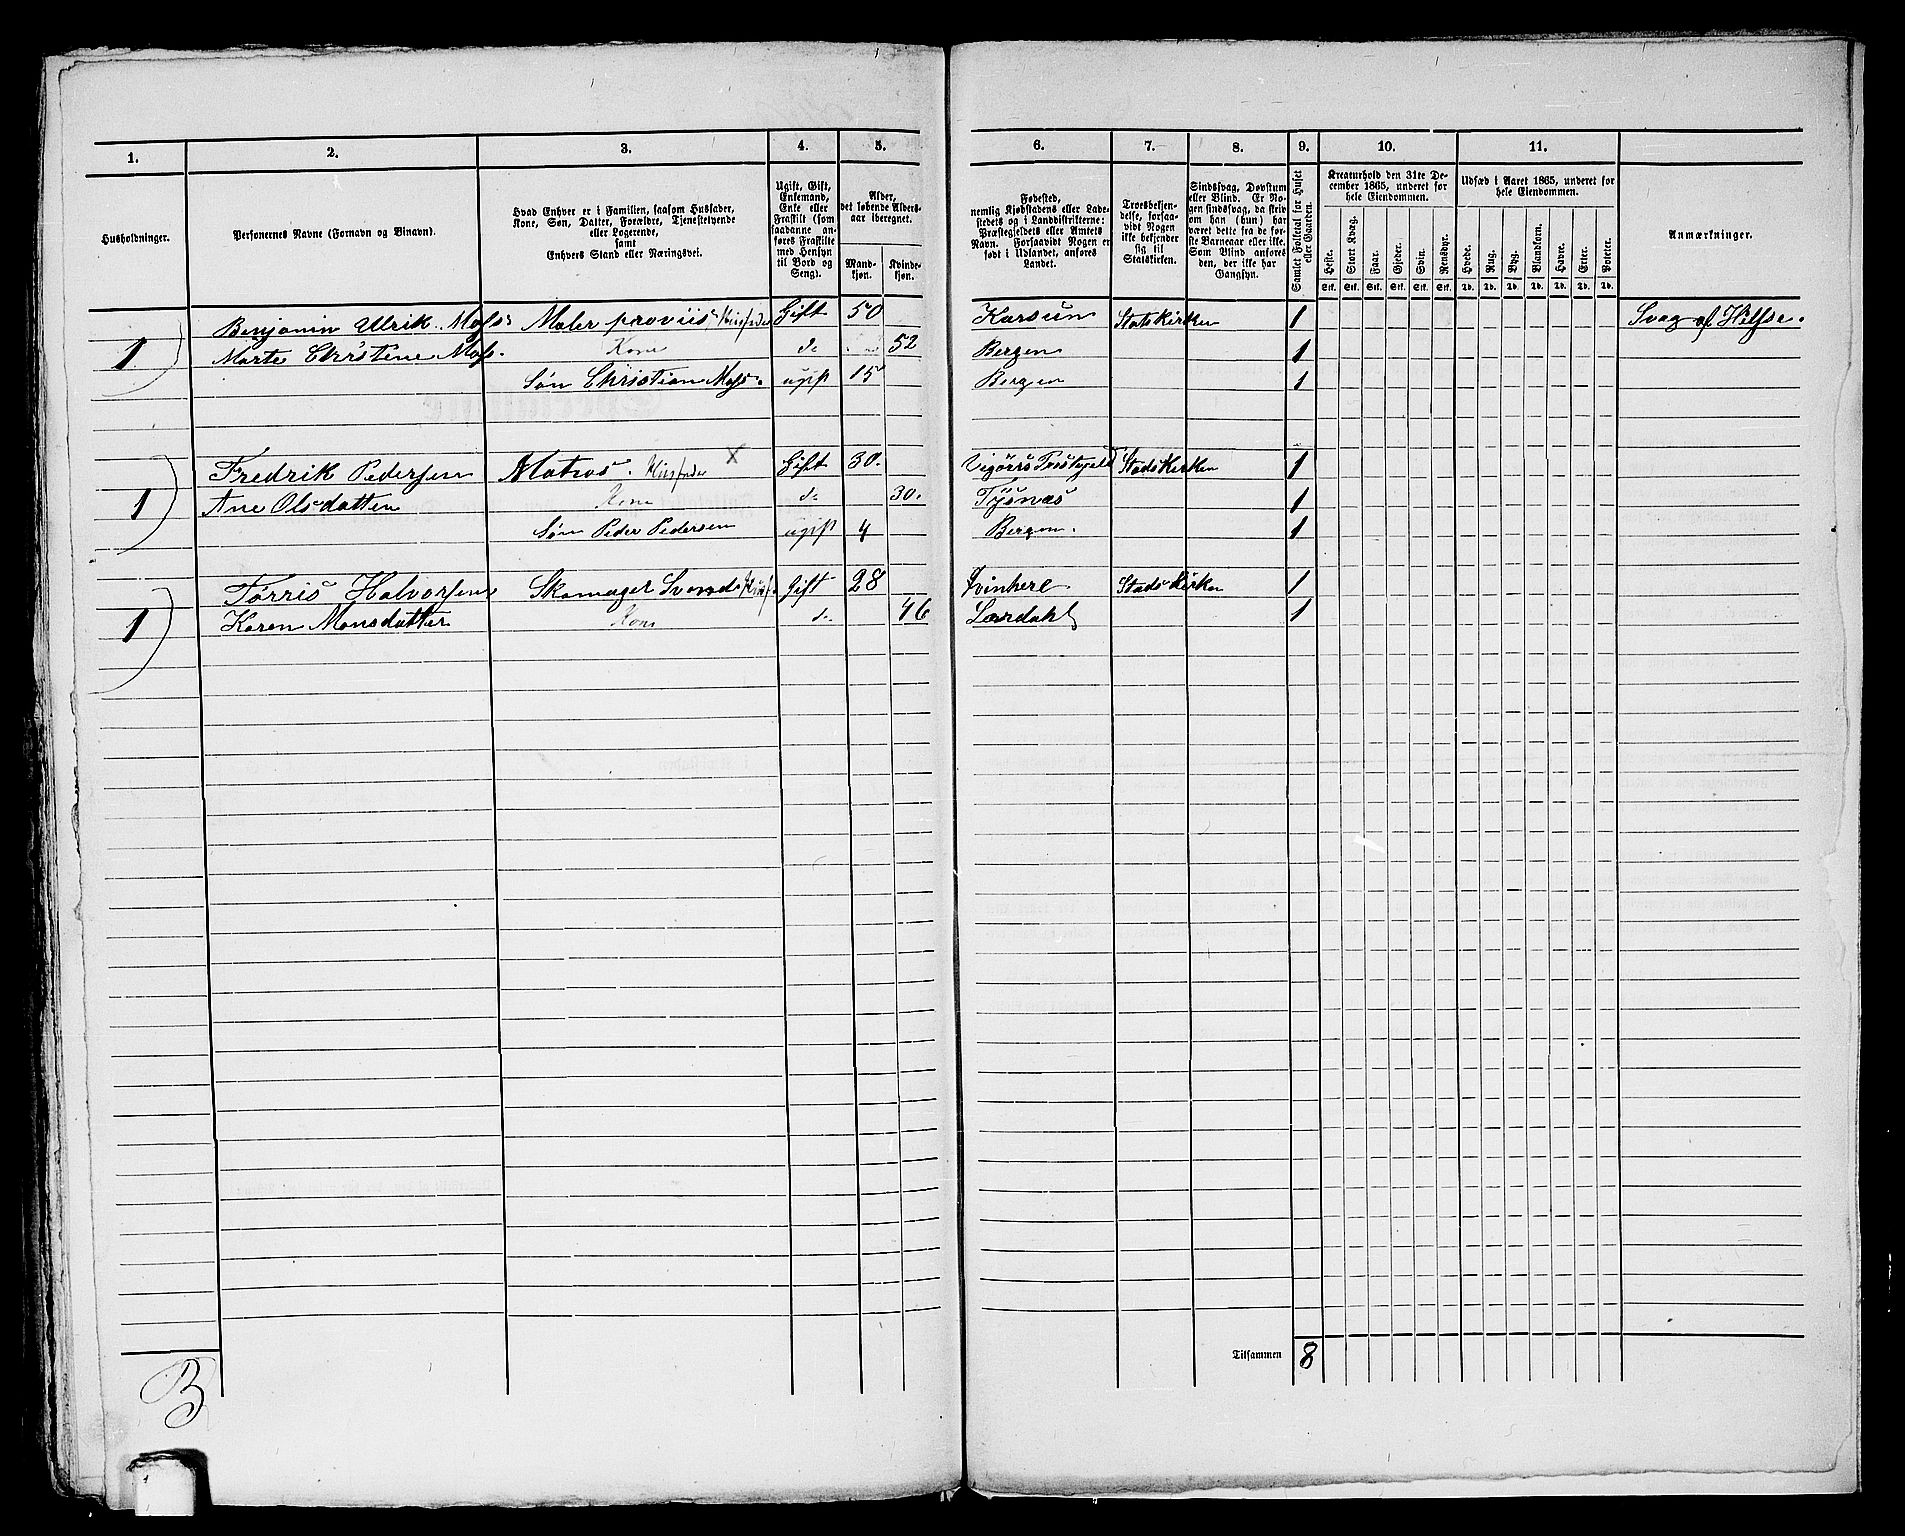 1. 2. 3. 4. 5. 6. 7. 8. 9. 10. 11.
Husholdninger.
Personernes Navne (Fornavn og Binavn).
Hvad Enhver er i Familien, saasom Husfader,
Kone, Søn, Datter, Forældre, Tjenestetyende
eller Logerende,
samt
Enhvers Stand eller Næringsvei.
Ugift, Gift,
Enkemand,
Enke eller
Fraskilt (som
saadanne an-
føres Fraskilte
med Hensyn
til Bord og
Seng).
Alder,
det løbende Alders-
aar iberegnet.
Mand-
kjøn.
Kvinde-
kjøn.
Fødested,
nemlig Kjøbstadens eller Lade-
stedets og i Landdistrikterne:
Præstegjeldets eller Amtets
Navn. Forsaavidt Nogen er
født i Udlandet, anføres
Landet.
Troesbekjen-
delse, forsaa-
vidt Nogen
ikke bekjender
sig til
Statskirken.
Sindssvag, Døvstum
eller Blind. Er No-
gen sindssvag, da skriv
om han (hun) har
været dette fra de før-
ste Barneaar eller ikke.
Som Blind anføres
den, der ikke har
Gangsyn.
Samlet Folketal for Huset
eller Gaarden.
Kreaturhold den 31te De-
cember 1865, underet for
hele Eiendommen.
Heste. Stort Kvæg. Faar. Gjeder. Svin. Rensdyr.
Stk. Stk. Stk. Stk. Stk. Stk.
Udsæd i Aaret 1865, underet for
hele Eiendommen.
Hvede. Rug. Byg. Blandkorn. Havre. Erter. Poteter.
Td. Td. Td. Td. Td. Td. Td.
Anmærkninger.
Benjamin Ulrik Mos: Maler Husfader Gift 50 Karsun Statskirken 1 Svag af Helse.
1 Marte Christene Mos. Kone do 52 Bergen 1
Søn Christian Mos. ugift 15 Bergen 1
Fredrik Pedersen Matros. Husfader X Gift 30. Stadskirken 1
1 Ane Olsdatten Kone do 30. Tysnæs 1
Søn Peder Pedersen ugift 4 Bergen. 1
Torris Halvorsen Skomager Svend Husf. Gift 28 Qvinherl Stadskirken 1
1 Karen Monsdatter Kone do 46 Lærdahl 1
Tilsammen 8
B